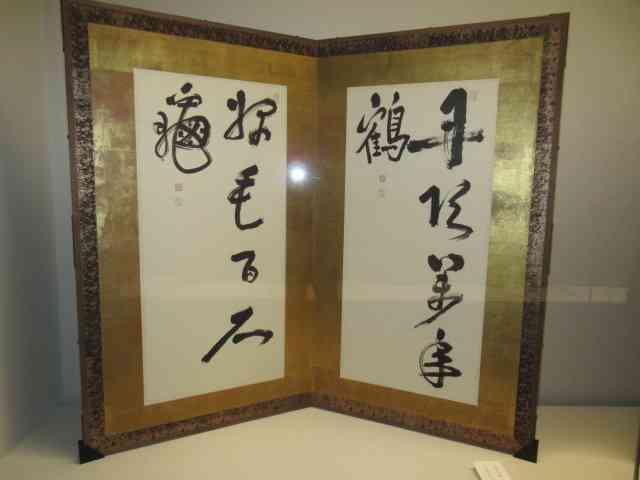 丹頂萬年
鶴
緑毛百石
龜